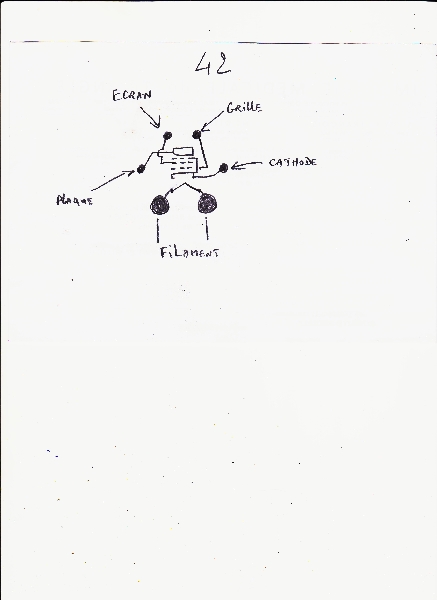 42
ECRAN
GRILLE
CATHODE
PLAQUE
FILAMENT